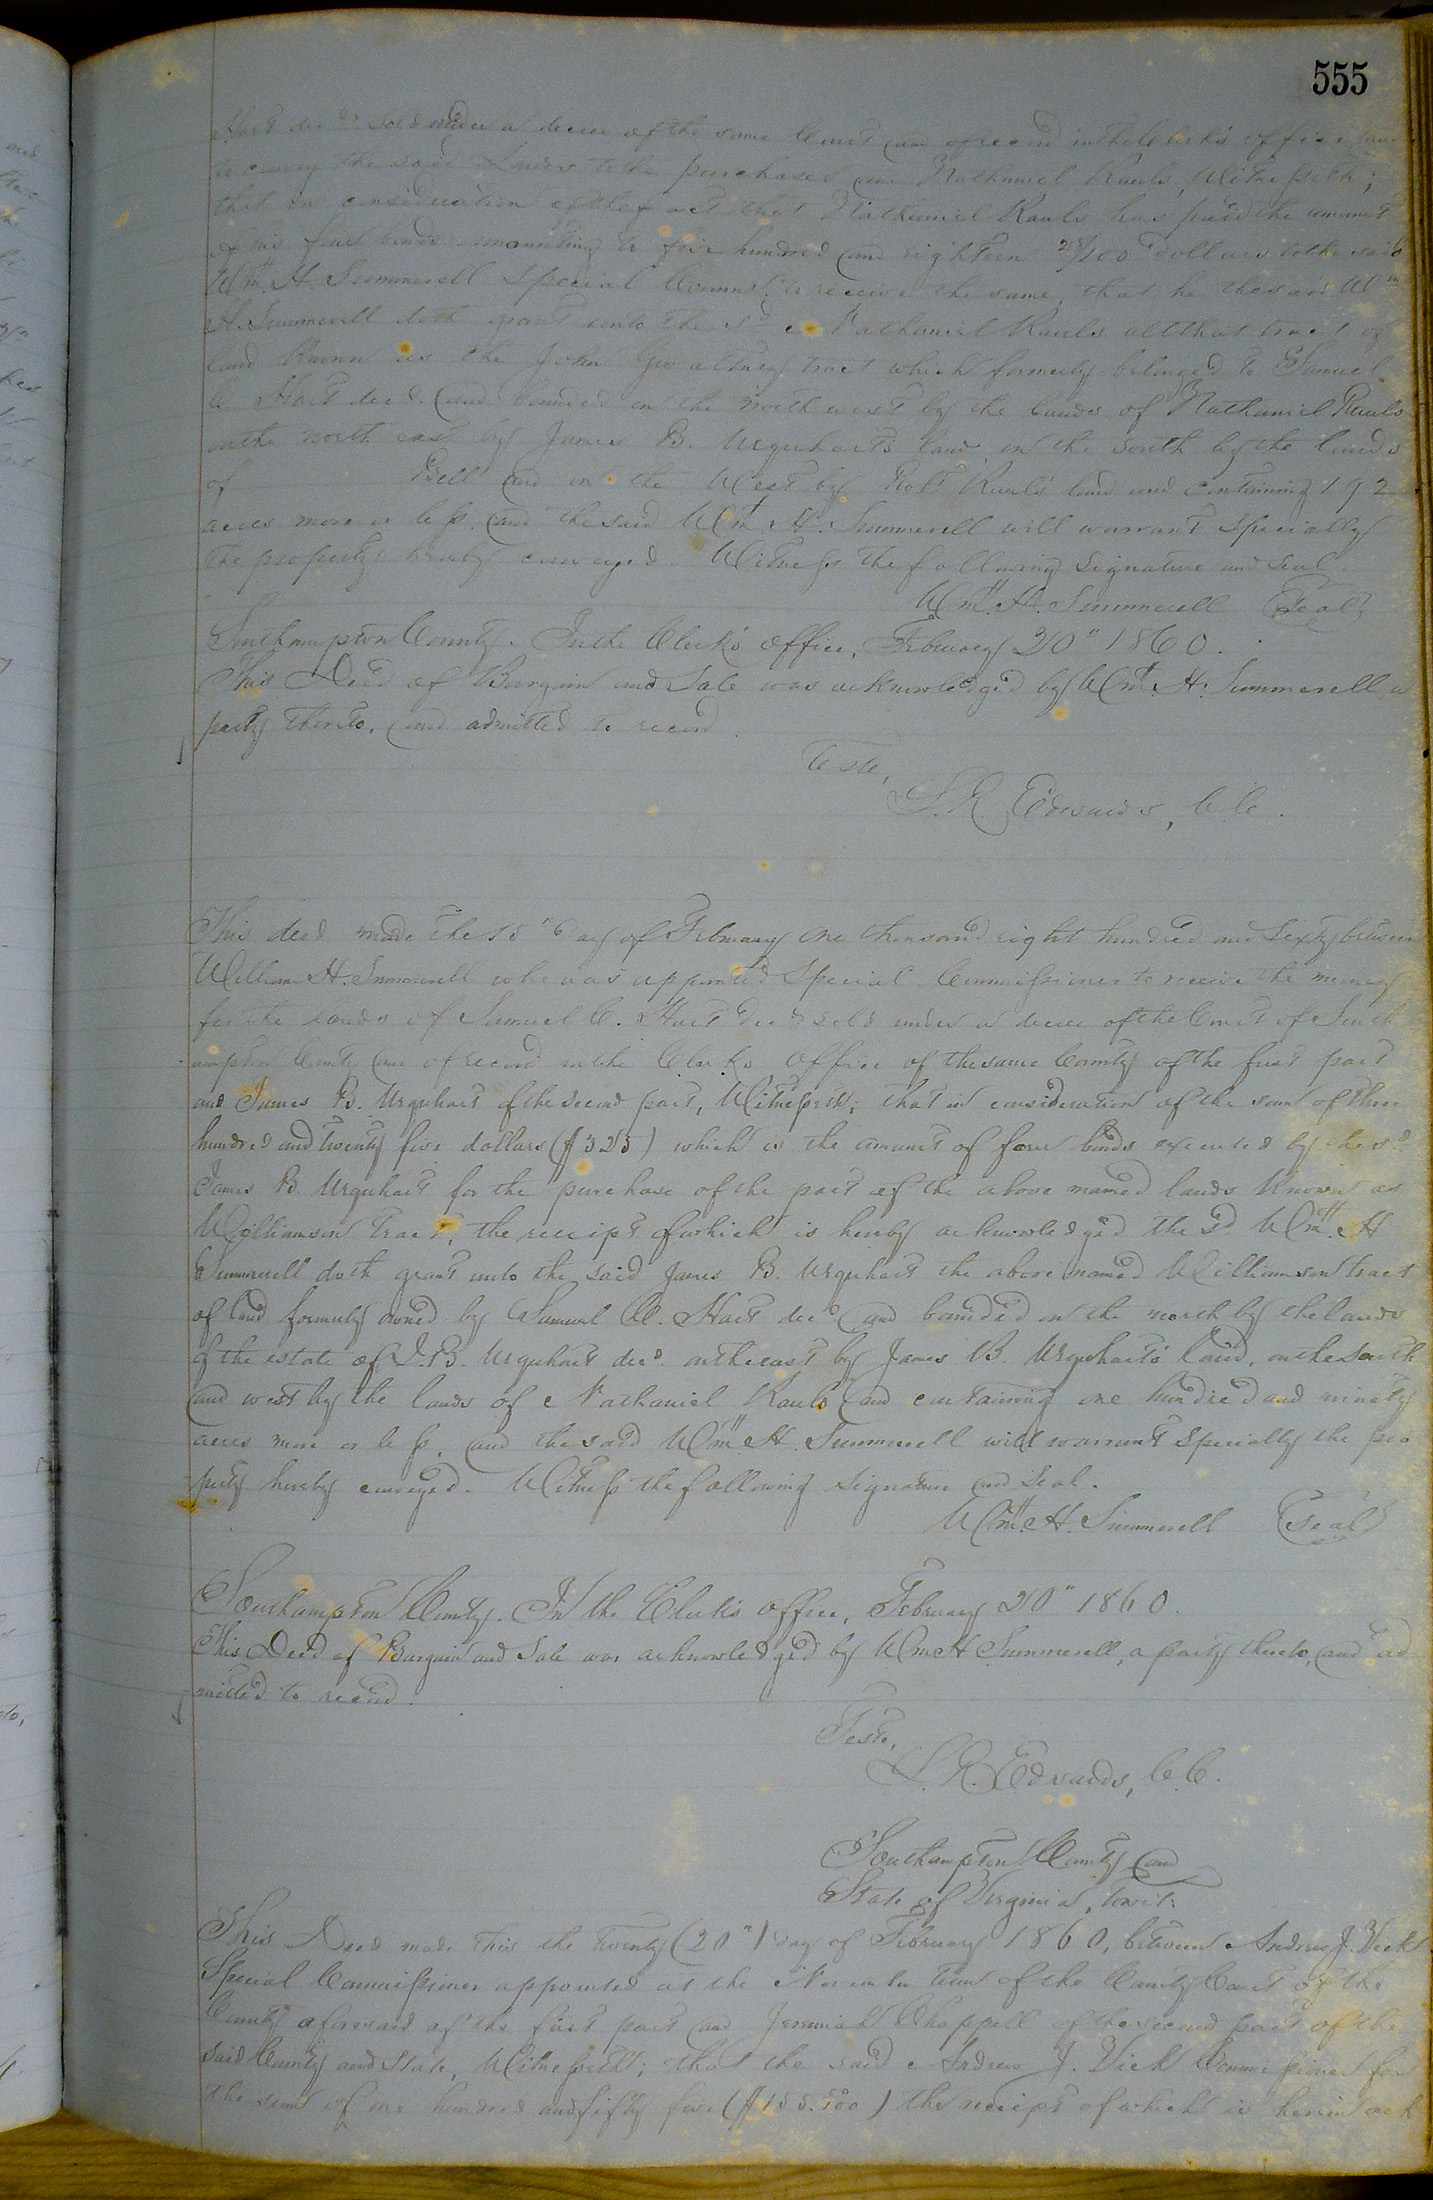 555
Hart dec.d sold under a decree of the same Court and of record in the Clerk's office
to convey the said Lands to the purchaser and Nathaniel Rawls, Witnesseth;
that in consideration of the fact that Nathaniel Rawls has paid the amount
of his four bonds amounting to five hundred and eighteen 25/100 dollars to the said
Wm. H. Summerell Special Comm.r to receive the same, that he the said Wm
H. Summerell doth grant unto the sd Nathaniel Rawls all that tract of
land known as the John Gwaltney tract which formerly belonged to Samuel
C. Hart dec.d. and bounded on the north west by the lands of Nathaniel Rawls
on the north east by James B. Urquhart's land, on the south by the lands
of Bell and on the West by Rob.t Rawls' land and containing 192
acres more or less, and the said Wm H. Summerell will warrant specially
the property hereby conveyed. Witness the following signature and seal.
Wm. H. Summerell (Seal)
Southampton County. In the Clerk's Office, February 20" 1860.
This Deed of Bargain and Sale was acknowledged by Wm. H. Summerell a
party thereto, and admitted to record.
Teste,
L. R. Edwards, C. C.
This deed made the 15" day of February one thousand eight hundred and sixty between
William H. Summerell who was appointed Special Commissioner to receive the money
for the lands of Samuel C. Hart dec.d sold under a decree of the Court of South
ampton County and of record in the Clerks Office of the same County of the first part
and James B. Urquhart of the second part, Witnesseth; that in consideration of the sum of three
hundred and twenty five dollars ($325) which is the amount of four bonds executed by the sd
James B. Urquhart for the purchase of the part of the above named lands known as
Williamson Tract, the receipt of which is hereby acknowledged the sd Wm. H
Summerell doth grant unto the said James B. Urquhart the above named Williamson tract
of land formerly owned by Samuel C. Hart dec.d and bounded on the north by the lands
of the estate of J. B. Urquhart dec.d. on the east by James B. Urquhart's land, on the South
and west by the lands of Nathaniel Rawls and containing one hundred and ninety
acres more or less, and the said Wm H. Summerell will warrant specially the pro
perty hereby conveyed. Witness the following signature and seal.
Wm. H. Summerell (Seal)
Southampton County. In the Clerk's office, February 20" 1860.
This Deed of Bargain and Sale was acknowledged by Wm H Summerell, a party thereto, and ad
mitted to record.
Teste,
L. R. Edwards, C. C.
Southampton County and
State of Virginia, towit:
This Deed made this the twenty (20") day of February 1860, between Andrew J. Vick
Special Commissioner appointed at the November term of the County Court of the
County aforesaid of the first part and Jeremiah Chappell of the second part of the
said County and State, Witnesseth; that the said Andrew J. Vick Commissioner for
the sum of one hundred and fifty five ($155.00/100) the receipt of which is herein ack